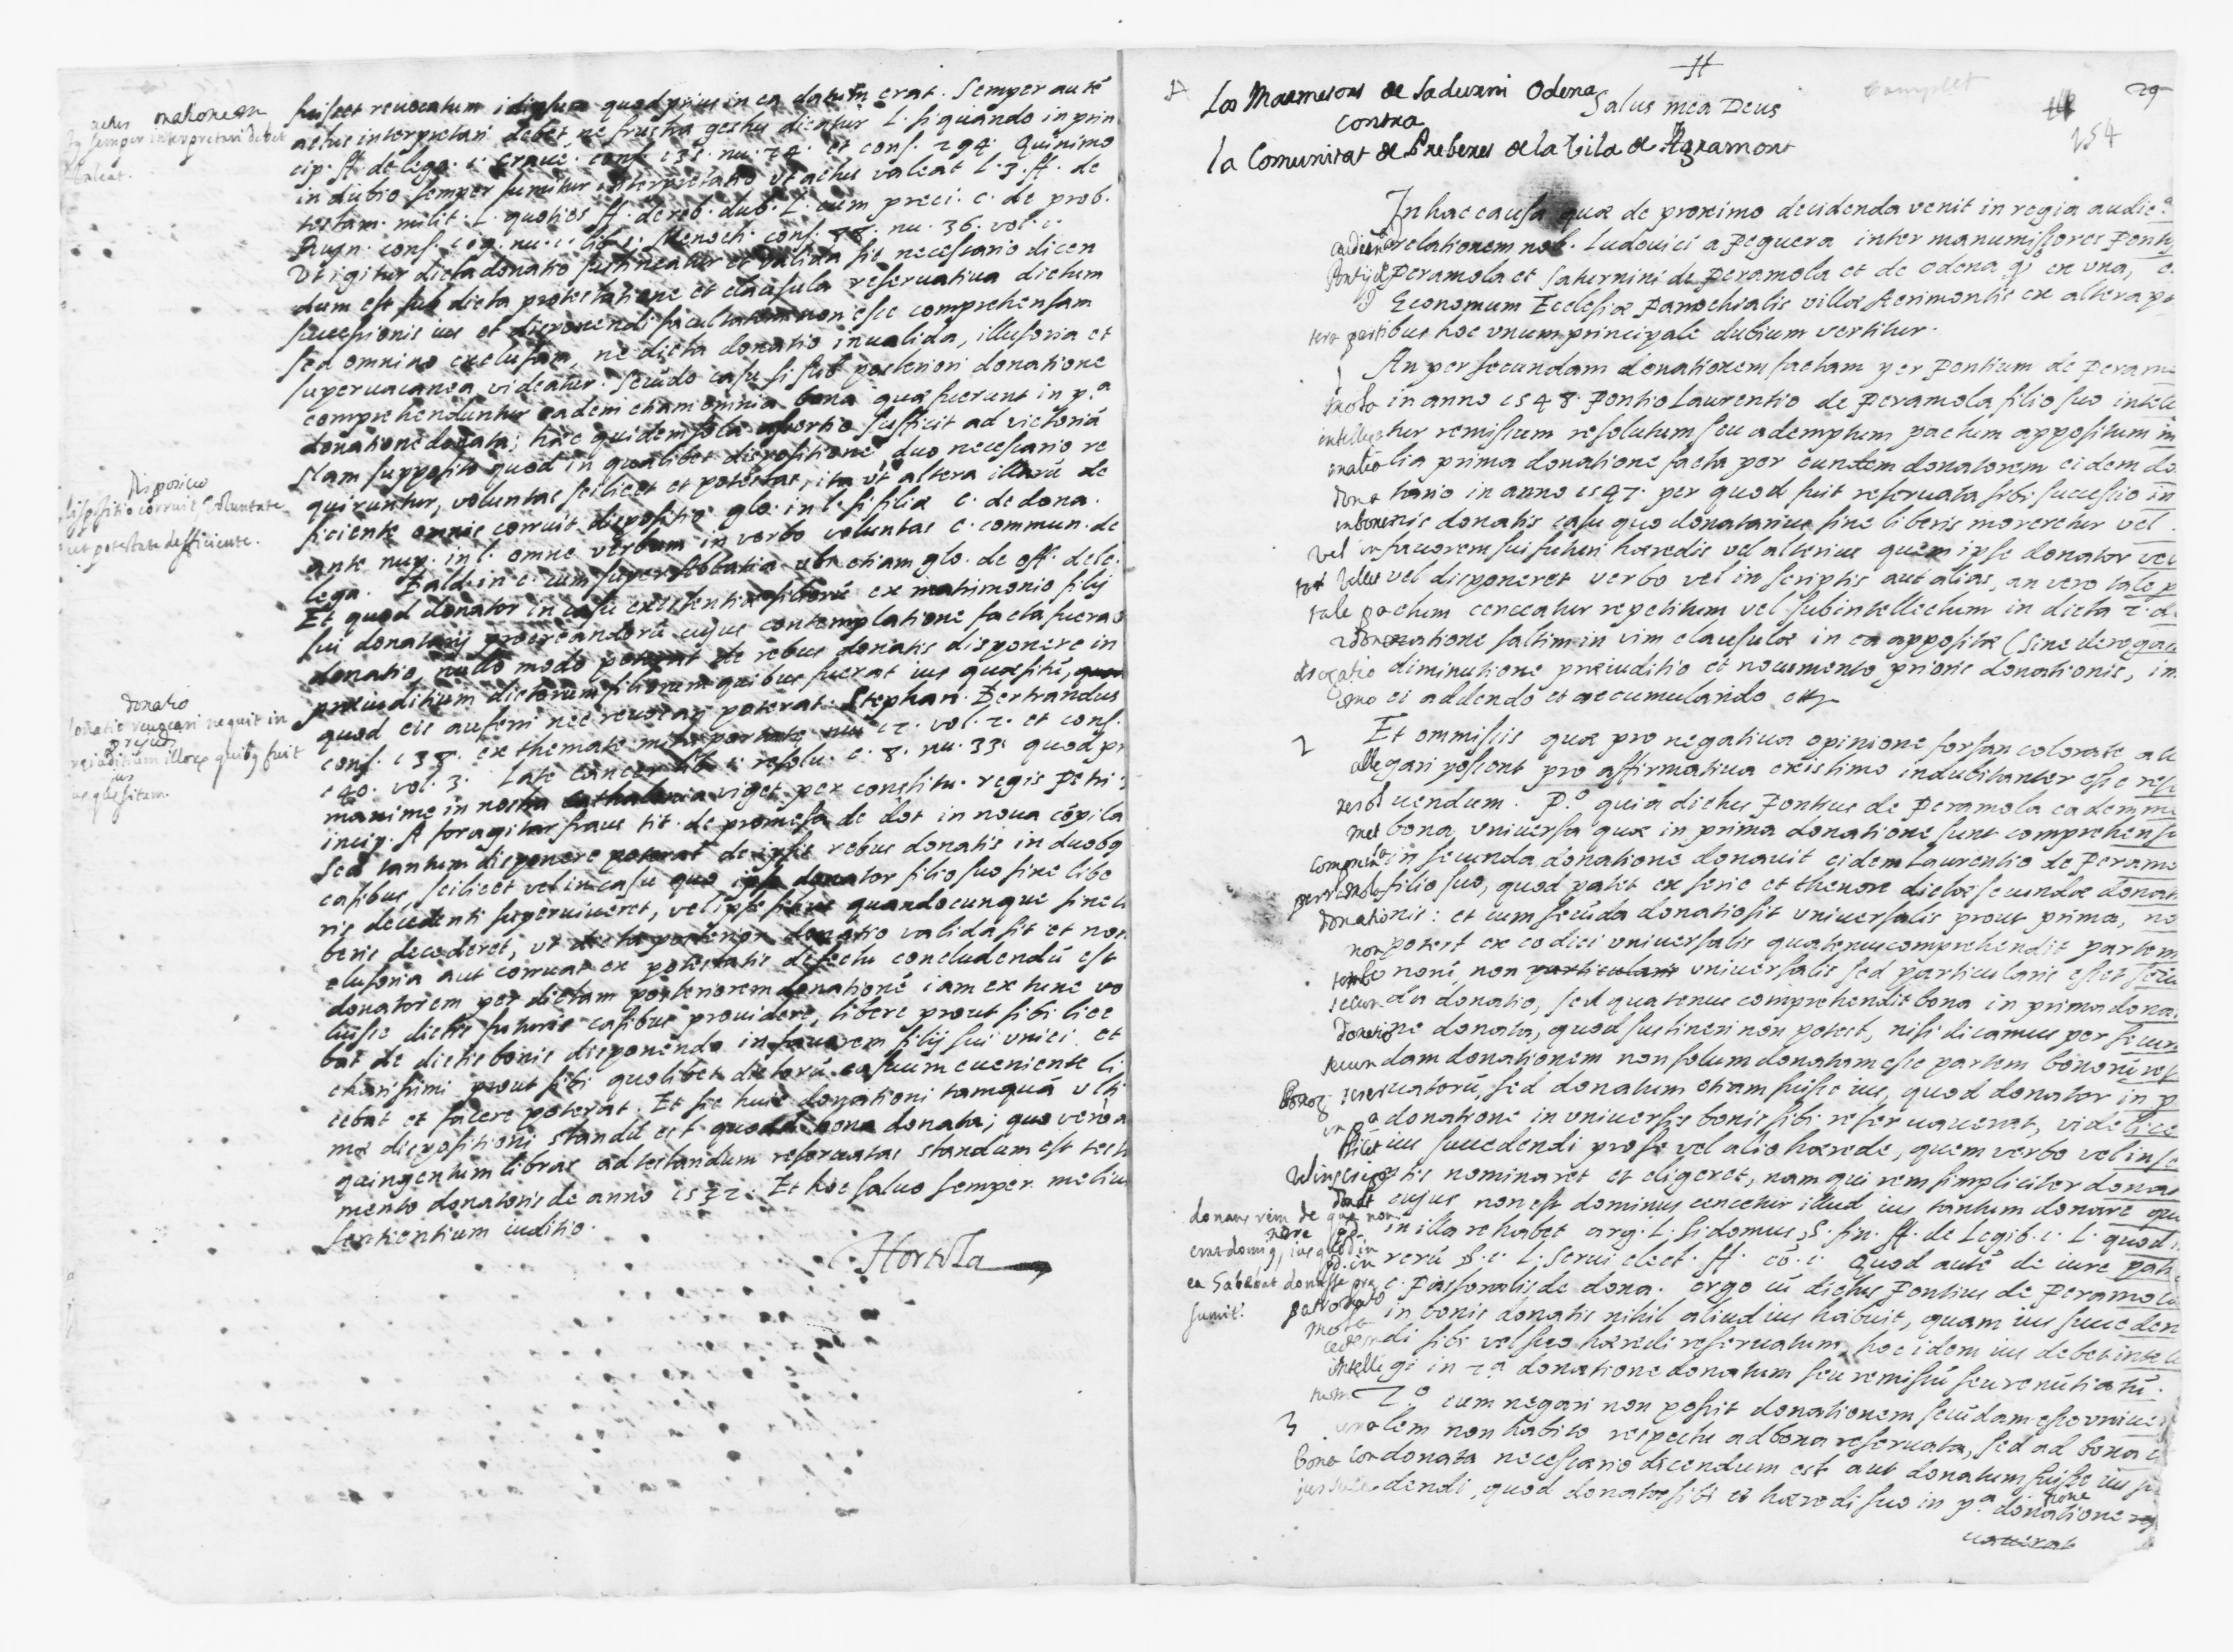 fuisset revocatum id ipsum quod prius in ea datum erat. Semper autē
actus interpretari debet ne frustra geshus dicatur L. si quando in prin
cip. ff. de lega. 1. Graue. cons. 131. nu. 24. et cons. 294. Quinimo
in dubio semper sumitur interpretatio vt actus valeat L. 3. ff. de
testam. milit. L. quoties ff. de reb. dub. L. cum preci. c. de prob.
Ruyn. cons. 109. nu. 1. lib. 1. Menoch. cons. nu. 36. vol. 1
Vt igitur dicta donatio sustineatur et valida sit necessario dicen
dum est sub dicta protestatione et clausula reservativa dictum
successionis ius et disponendi facultatem non esse comprehensam
sed omnino exclusam, ne dicta donatio invalida, illusoria et
supervacanea videatur. Secūdo casu si sub posteriori donatione
comprehenduntur eadem etiam omnia bona quæ fuerunt in p.ᵃ
donatione donata; hæc quidem sola assertio sufficit ad victoriā
Nam supposito quod in qualibet dispositione duo necessario re
quiruntur, voluntas scilicet et potestas, ita vt altera illarū de
ficiente omnis corruit dispositio glo. in l. si filiæ c. de dona.
ante nup. in l. omne verbum in verbo voluntas c. commun. de
lega. Bald. in c. cum super Abbatia vbi etiam glo. de off. dele.
Et quod donator in casu existentiæ filiorū ex matrimonio filij
sui donatarij procreandorū cujus contemplatione facta fuerat
donatio, nullo modo poterat de rebus donatis disponere in
præiuditium dictorum filiorum quibus fuerat ius quæsitū,
quod eis auferri nec revocari poterat. Stephan. Bertrandus
cons. 138. ex themate mihi portato nu. 12. vol. 2. et cons.
140. vol. 3. Late Cancer lib. 1. resolu. c. 8. nu. 33. quod pr
maxime in nostra Cathalonia viget per constitu. regis Petri
incip. A foragitar fraus tit. de promesa de dot in noua cōpila
Sed tantum disponere poterat de ipsis rebus donatis in duobꝫ
casibus, scilicet vel in casu quo ipse donator filio suo sine libe
ris decedenti superviveret, vel ipse filius quandocunque sine li
beris decederet, vt dicta posterior donatio valida sit et non
elusoria aut corruat ex potestatis defectu concludendū est
donatorem per dictam posteriorem donationē iam ex tunc vo
luisse dictis futuris casibus providere, libere prout sibi lice
bat de dictis bonis disponendo in favorem filij sui vnici et
charissimi prout sibi quolibet dictorū casuum eveniente li
cebat et facere poterat. Et sic huic donationi tamquā vlti
mæ dispositioni standū est quoad bona donata; quo vero a
quingentum libras ad testandum reservatas standum est testa
mento donatoris de anno 1572. Et hoc salvo semper meliu
sentientium iuditio.
Hortola
actus
semper interpretari debet
valeat.
Disposicio
dispositio corruit voluntate
aut potestate defficiente.
donatio
donatio revocari nequit in
preiud
preiuditium illorꝫ quibꝫ fuit
ius
ius quesitum.
H
29
complet
254
Los Marmesors de Sadurni Odena
Salus mea Deus
contra
la Comunitat de Preberes de la Vila de Agramont
In hac causa quæ de proximo decidenda venit in regia audiē.ᵃ
audien relationem nob. Ludovici a Peguera inter manumissores Ponty
Pontij de Peramola et Saturnini de Peramola et de Odena qº ex vna, e
Economum Ecclesiæ Parrochialis villæ Acrimontis ex altera pa
tera partibus hoc vnum principale dubium vertitur.
1 An per secundam donationem factam per Pontium de Peram
mola in anno 1548. Pontio Laurentio de Peramola filio suo intele
intelligatur remissum resolutum seu ademptum pactum appositum in
lia prima donatione facta per eundem donatorem eidem do
dona tario in anno 1547. per quod fuit reservata sibi successio in
in bonis donatis casu quo donatarius sine liberis moreretur vel
vel in favorem sui futuri hæredis vel alterius quem ipse donator vel
vellet vel disponeret verbo vel in scriptis aut alias, an vero tale p
tale pactum censeatur repetitum vel subintellectum in dicta 2. d
2 donatione saltim in vim clausulæ in ea appositæ (sine deroga
derogatio diminutione præiuditio et nocumento prioris donationis, im
imo ei addendo et accumulando etc
2 Et ommissis quæ pro negativa opinione forsan colorate all
allegari possent pro affirmativa existimo indubitanter esse reso
resol vendum. P.º quia dictus Pontius de Peramola eademme
met bona vniversa quæ in prima donatione sunt comprehensa
in secunda donatione donavit eidem Laurentio de Peramo
filio suo, quod patet ex serie et thenore dictæ secundæ donati
donationis: et cum secūda donatio sit vniversalis prout prima, no
non potest ex eo dici vniversalis quatenus comprehendit partem
nonī, non particularis vniversalis sed particularis esset secu
secun da donatio, sed quatenus comprehendit bona in prima dona
donatione donata, quod sustineri non potest, nisi dicamus per secun
secundam donationem non solum donatam esse partem bonorū res
bonoꝝ reservatorū, sed donatum etiam fuisse ius, quod donator in p
in p.ᵃ donatione in vniversis bonis sibi reservaverat, videlice
licet ius succedendi pro se vel alio hærede, quem verbo vel in sc
vel in scriptis nominaret et eligeret, nam qui rem simpliciter dona
donat cujus non est dominus censetur illud ius tantum donare quod
in illa re habet arg. L. si domus, §. fin. ff. de Legib. 1. L. quod
rerū §. 1. L. Servi elect. ff. eō. 1. Quod autē de iure patr
c. Pastoralis de dona. ergo cū dictus Pontius de Peramola
in bonis donatis nihil aliud ius habuit, quam ius succeden
cedendi sibi vel suo hæredi reservatum, hoc idem ius debet intell
intelligi in 2.ᵃ donatione donatum seu remissū seu renūtiatū.
3 2.º cum negari non possit donationem secūdam esse vniver
versalem non habito respectu ad bona reservata, sed ad bona
bona condonata necessario dicendum est aut donatum fuisse ius su
ius succedendi, quod donator sibi et hæredi suo in p.ᵃ donatione
donans rem de qua non
erat domꝰ, ius quod in
ea habebat donasse pre
sumit.